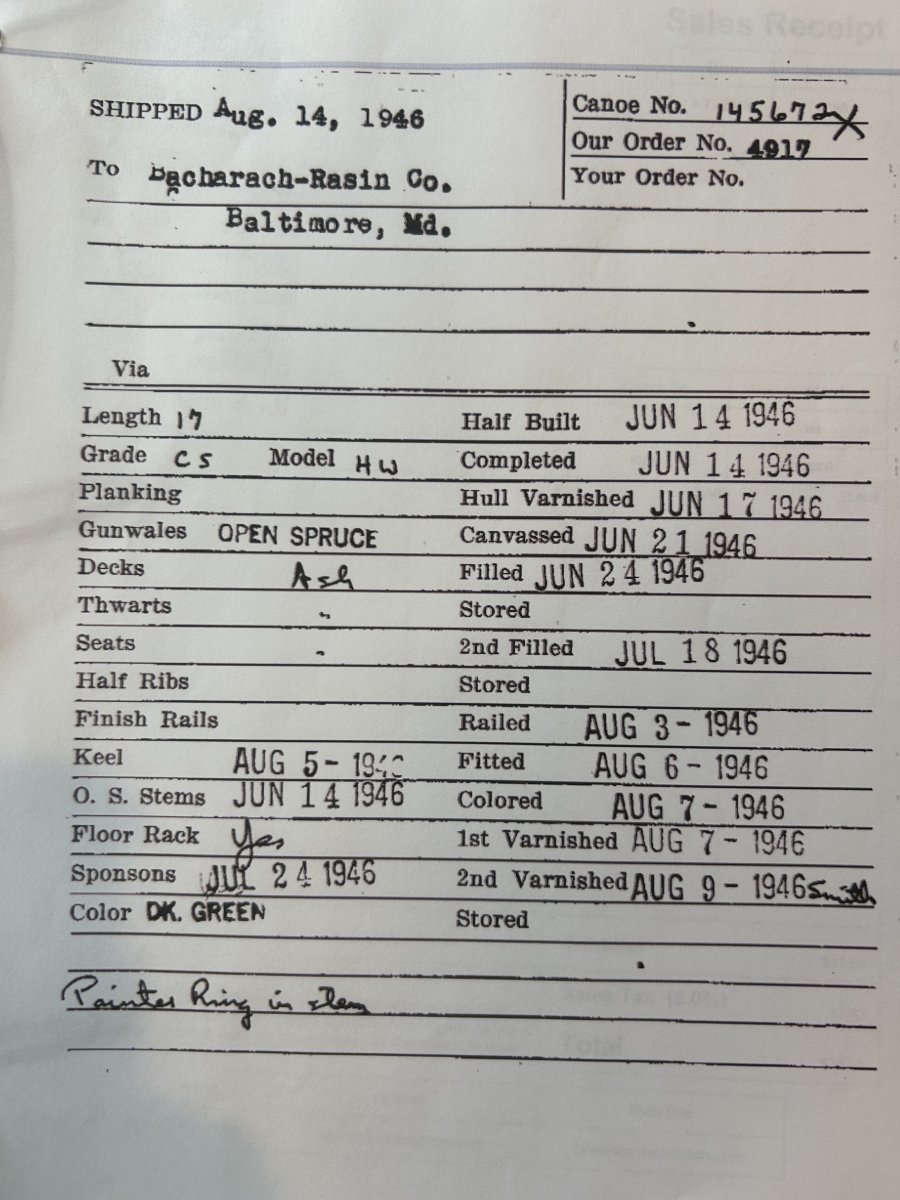 Sales Receipt
SHIPPED Aug. 14, 1946
Canoe No. 145672
Our Order No. 4917
To Bacharach-Rasin Co.
Your Order No.
Baltimore, Md.
Via
Length 17 Half Built JUN 14 1946
Grade CS Model HW Completed JUN 14 1946
Planking Hull Varnished JUN 17 1946
Gunwales OPEN SPRUCE Canvassed JUN 21 1946
Decks Ash Filled JUN 24 1946
Thwarts " Stored
Seats " 2nd Filled JUL 18 1946
Half Ribs Stored
Finish Rails Railed AUG 3 - 1946
Keel AUG 5 - 1946 Fitted AUG 6 - 1946
O. S. Stems JUN 14 1946 Colored AUG 7 - 1946
Floor Rack Yes 1st Varnished AUG 7 - 1946
Sponsons JUL 24 1946 2nd Varnished AUG 9 - 1946 Smith
Color DK. GREEN Stored
Painter Ring in stem
Sales Tax (6.0%)
Total